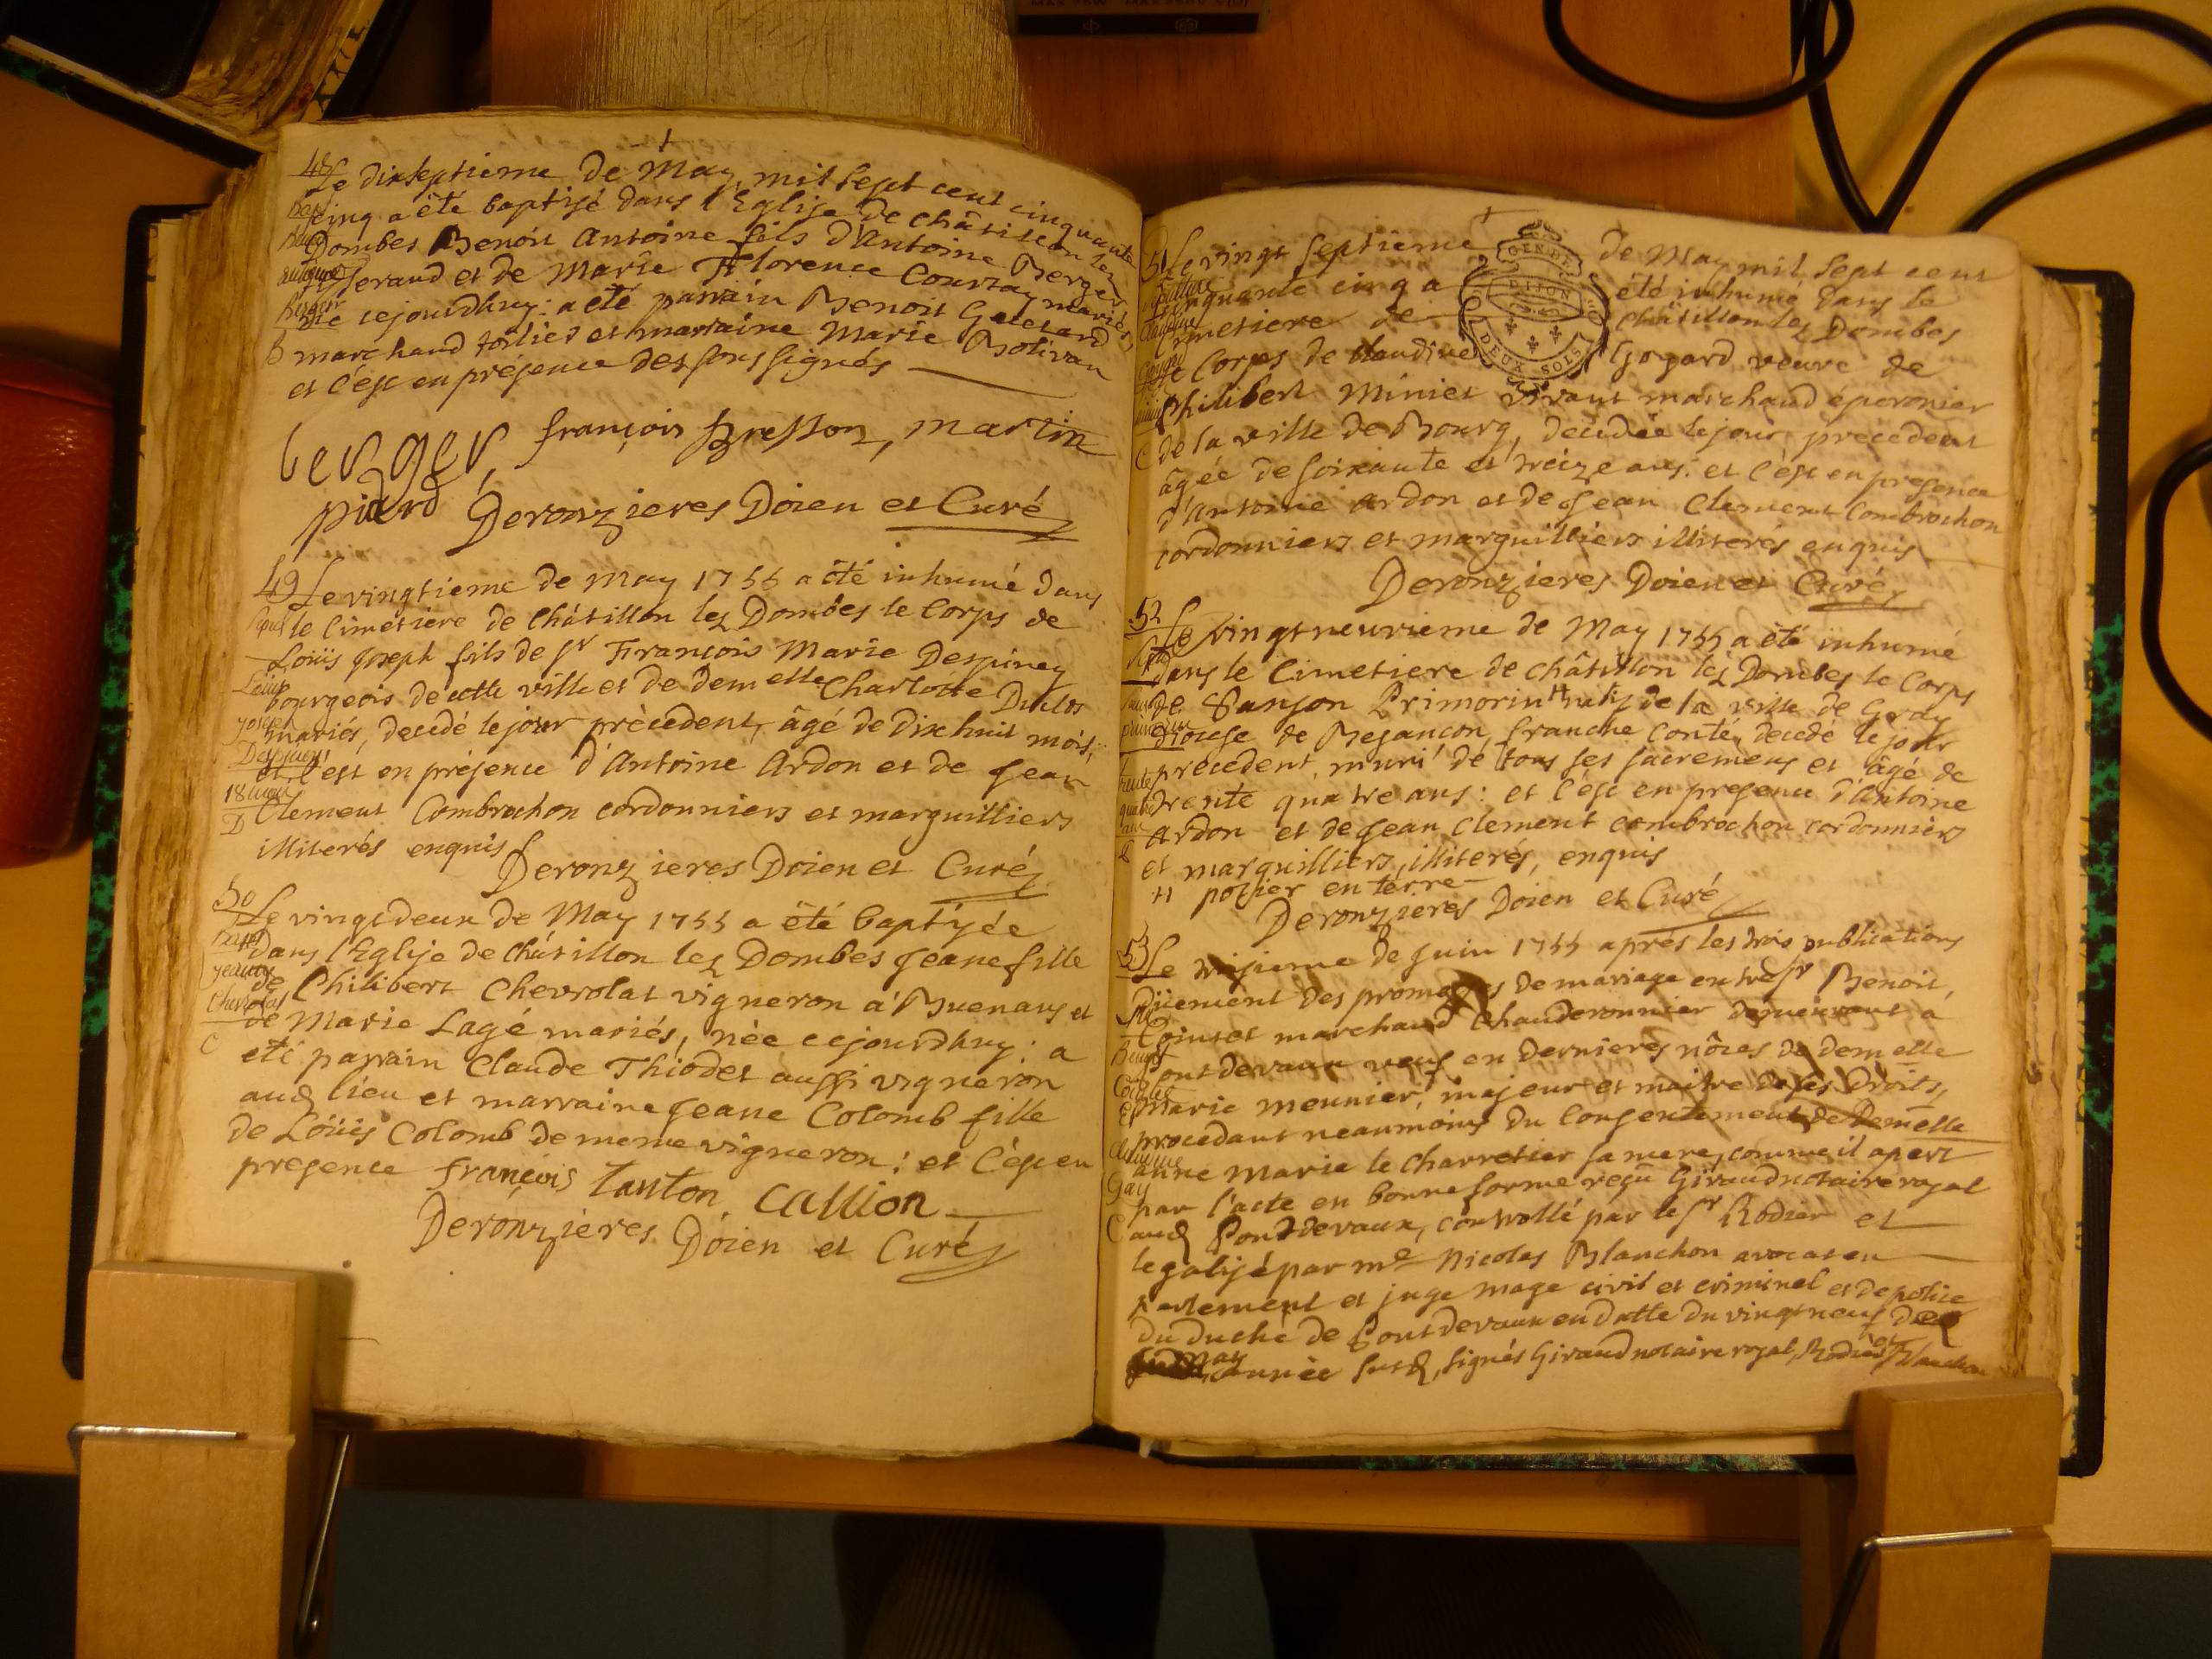 48 Le dixseptieme de May mil sept cent cinquante
cinq a été baptisé dans l'Eglise de châtillon lez
Dombes Benoit Antoine fils d'Antoine Berger
et de Marie Florence Courtay mariés,
né cejourdhuy: a été parrain Benoit
B marchand et marraine Marie Bolivan
et c'est en présence des soussignés
berger françois bresson, martin
Deronzieres Doien et Curé
49 Le vingtieme de May 1755 a été inhumé dans
le Cimetiere de Châtillon lez Dombes le Corps de
Loüis Joseph fils de Sr François Marie Despiney
bourgeois de cette ville et de demelle Charlotte Duclos
mariés, decedé le jour précedent, âgé de dix huit mois,
et c'est en présence d'Antoine Ardon et de Jean
Clement Combrochon cordonniers et marguilliers
illiterés enquis
Deronzieres Doien et Curé
50 Le vingtdeux de May 1755 a été baptisée
dans l'Eglise de châtillon lez Dombes Jeane fille
de Philibert Chevrolat vigneron a Buenans et
de Marie Lagé mariés, née cejourdhuy: a
été parrain Claude Thiodet aussi vigneron
aud lieu et marraine Jeane Colomb fille
de Loüis Colomb de meme vigneron: et c'est en
presence françois Tanton, Callion
Deronzieres Doien et Curé
GENER
DIJON
DEUX SOLS
51 Le vingt septieme de May mil sept cent
cinquante cinq a été inhumé dans le
Cimetiere de Châtillon lez Dombes
le Corps de claudine Gogard veuve de
Philibert Miniet vivant marchand éperonier
de la ville de Bourg, decedée le jour precedent
âgée de soixante et treize ans: et c'est en presence
d'Antoine Ardon et de Jean Clement Combrochon
cordonniers et marguilliers illiterés enquis
Deronzieres Doien et Curé
52 Le vingtneuvieme de May 1755 a été inhumé
dans le Cimetiere de châtillon lez Dombes le Corps
de Sanson Primorin natif de la ville de Gray
diocese de Besançon, franche Conté, decedé le jour
precedent, muni de tous ses sacremens et âgé de
trente quatre ans: et c'est en presence d'Antoine
Ardon et de Jean Clement combrochon cordonniers
et marguilliers, illiterés, enquis
potier en terre
Deronzieres Doien et Curé
53 Le troisieme de Juin 1755 aprés les trois publications
düement des promesses de mariage entre Sr Benoit,
Cointet marchand Chauderonnier demeurant a
Pontdevaux veuf en dernieres nôces de demelle
Marie Meunier, majeur et maître de ses Droits,
procedant neaumoins du Consentement de Demelle
anne Marie le Charretier sa mere, comme il apert
par l'acte en bonne forme reçû Giraud notaire royal
aud Pontdevaux, controllé par le Sr Rodier et
legalisé par me Nicolas Blanchon avocat en
parlement et juge mage civil et criminel et de police
du duché de Pontdevaux en datte du vingtneuf de
may année susd, signés Giraud notaire royal, Rodier et Blanchon